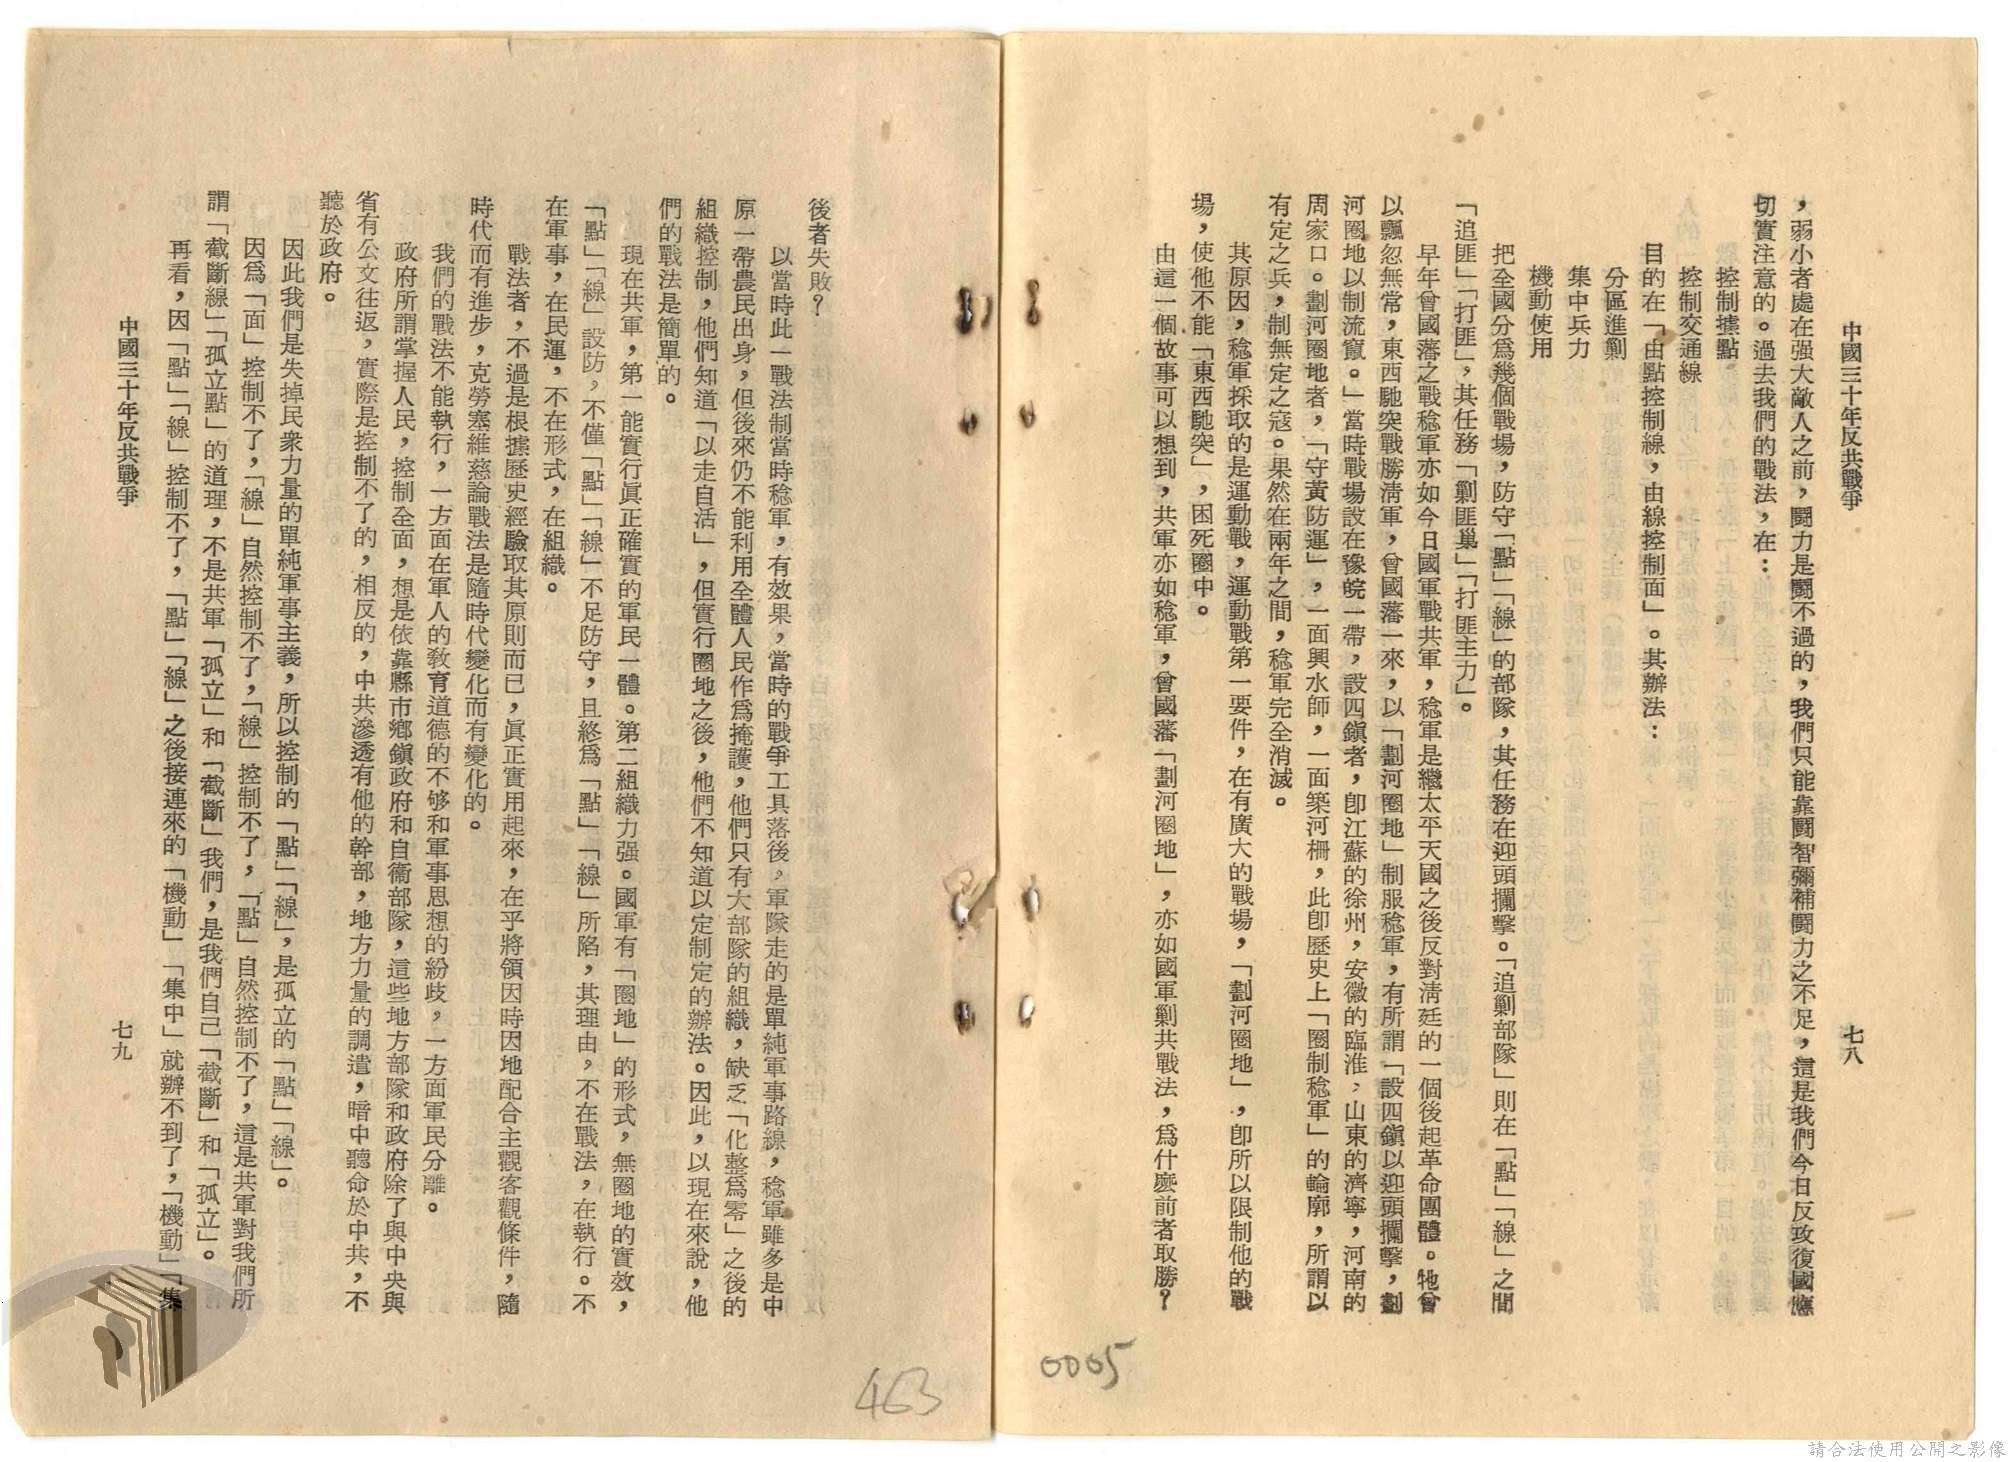 中國三十年反共戰爭
七八
，弱小者處在强大敵人之前，鬪力是鬪不過的，我們只能靠鬪智彌補鬪力之不足，這是我們今日反攻復國應
切實注意的。過去我們的戰法，在：
目的在「由點控制線，由線控制面」。其辦法：
控制據點
控制交通線
分區進剿
集中兵力
機動使用
把全國分爲幾個戰場，防守「點」「線」的部隊，其任務在迎頭攔擊。「追剿部隊」則在「點」「線」之間
「追匪」「打匪」，其任務「剿匪巢」「打匪主力」。
早年曾國藩之戰稔軍亦如今日國軍戰共軍，稔軍是繼太平天國之後反對淸廷的一個後起革命團體。牠曾
以飄忽無常，東西馳突戰勝淸軍，曾國藩一來，以「劃河圈地」制服稔軍，有所謂「設四鎭以迎頭攔擊，劃
河圈地以制流竄。」當時戰場設在豫皖一帶，設四鎭者，卽江蘇的徐州，安徽的臨淮，山東的濟寧，河南的
周家口。劃河圈地者，「守黃防運」，一面興水師，一面築河柵，此卽歷史上「圈制稔軍」的輪廓，所謂以
有定之兵，制無定之寇。果然在兩年之間，稔軍完全消滅。
其原因，稔軍採取的是運動戰，運動戰第一要件，在有廣大的戰場，「劃河圈地」，卽所以限制他的戰
場，使他不能「東西馳突」，困死圈中。
由這一個故事可以想到，共軍亦如稔軍，曾國藩「劃河圈地」，亦如國軍剿共戰法，爲什麽前者取勝？
後者失敗？
以當時此一戰法制當時稔軍，有效果，當時的戰爭工具落後，軍隊走的是單純軍事路線，稔軍雖多是中
原一帶農民出身，但後來仍不能利用全體人民作爲掩護，他們只有大部隊的組織，缺乏「化整爲零」之後的
組織控制，他們知道「以走自活」，但實行圈地之後，他們不知道以定制定的辦法。因此，以現在來說，他
們的戰法是簡單的。
現在共軍，第一能實行眞正確實的軍民一體。第二組織力强。國軍有「圈地」的形式，無圈地的實效，
「點」「線」設防，不僅「點」「線」不足防守，且終爲「點」「線」所陷，其理由，不在戰法，在執行。不
在軍事，在民運，不在形式，在組織。
戰法者，不過是根據歷史經驗取其原則而已，眞正實用起來，在乎將領因時因地配合主觀客觀條件，隨
時代而有進步，克勞塞維慈論戰法是隨時代變化而有變化的。
我們的戰法不能執行，一方面在軍人的敎育道德的不够和軍事思想的紛歧，一方面軍民分離。
政府所謂掌握人民，控制全面，想是依靠縣市鄕鎭政府和自衞部隊，這些地方部隊和政府除了與中央與
省有公文往返，實際是控制不了的，相反的，中共滲透有他的幹部，地方力量的調遣，暗中聽命於中共，不
聽於政府。
因此我們是失掉民衆力量的單純軍事主義，所以控制的「點」「線」，是孤立的「點」「線」。
因爲「面」控制不了，「線」自然控制不了，「線」控制不了，「點」自然控制不了，這是共軍對我們所
謂「截斷線」「孤立點」的道理，不是共軍「孤立」和「截斷」我們，是我們自己「截斷」和「孤立」。
再看，因「點」「線」控制不了，「點」「線」之後接連來的「機動」「集中」就辦不到了，「機動」「集
中國三十年反共戰爭
七九
463
0005
請合法使用公開之影像